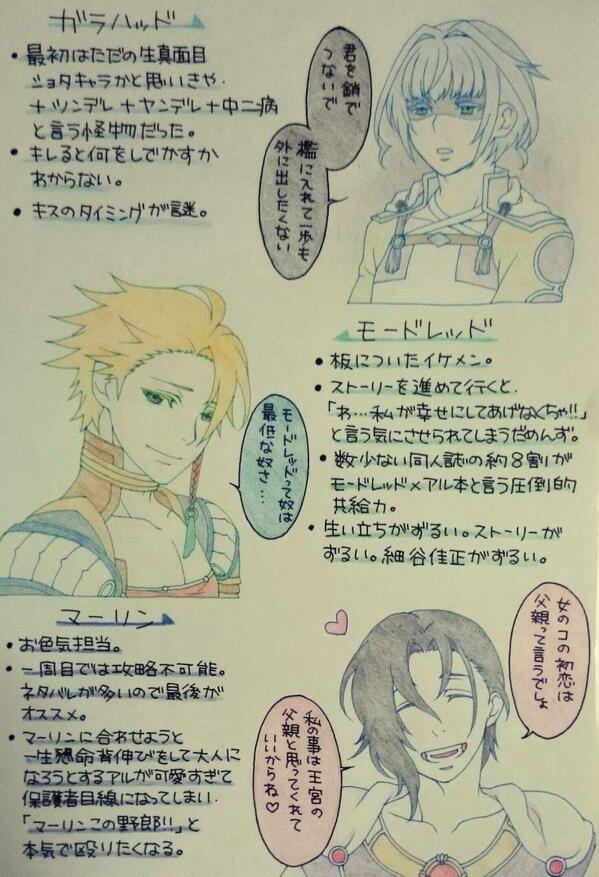 ガラハッド
・最初はただの生真面目
ショタキャラかと思いきや.
＋ツンデレ＋ヤンデレ＋中二病
と言う怪物だった。
・キレると何をしでかすか
わからない。
・キスのタイミングが謎。
君を鎖で
つないで
檻に入れて一歩も
外に出したくない
モードレッド
・板についたイケメン。
・ストーリーを進めて行くと、
「わ…私が幸せにしてあげなくちゃ!!」
と言う気にさせられてしまうだめんず。
・数少ない同人誌の約8割が
モードレッド×アル本と言う圧倒的
共給力。
・生い立ちがずるい。ストーリーが
ずるい。細谷佳正がずるい。
モードレッドって奴は
最低な奴さ…
マーリン
・お色気担当。
・一周目では攻略不可能。
ネタバレが多いので最後が
オススメ。
・マーリンに合わせようと
一生懸命背伸びをして大人に
なろうとするアルが可愛すぎて
保護者目線になってしまい.
「マーリンこの野郎!!」と
本気で殴りたくなる。
女のコの初恋は
父親って言うでしょ
私の事は王宮の
父親と思ってくれて
いいからね♡